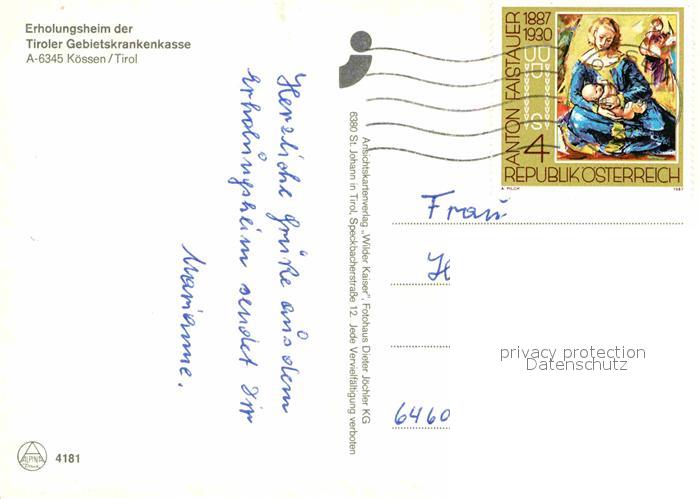 Erholungsheim der
Tiroler Gebietskrankenkasse
A-6345 Kössen/Tirol
Herzliche Grüße aus dem
Erholungsheim sendet Dir
Marianne.
Ansichtskartenverlag „Wilder Kaiser", Fotohaus Dieter Jöchler KG
6380 St. Johann in Tirol, Speckbacherstraße 12. Jede Vervielfältigung verboten
ANTON FAISTAUER 1887
1930
4
REPUBLIK ÖSTERREICH
A. PILCH 1987
Frau
H
6460
privacy protection
Datenschutz
ALPINA
4181